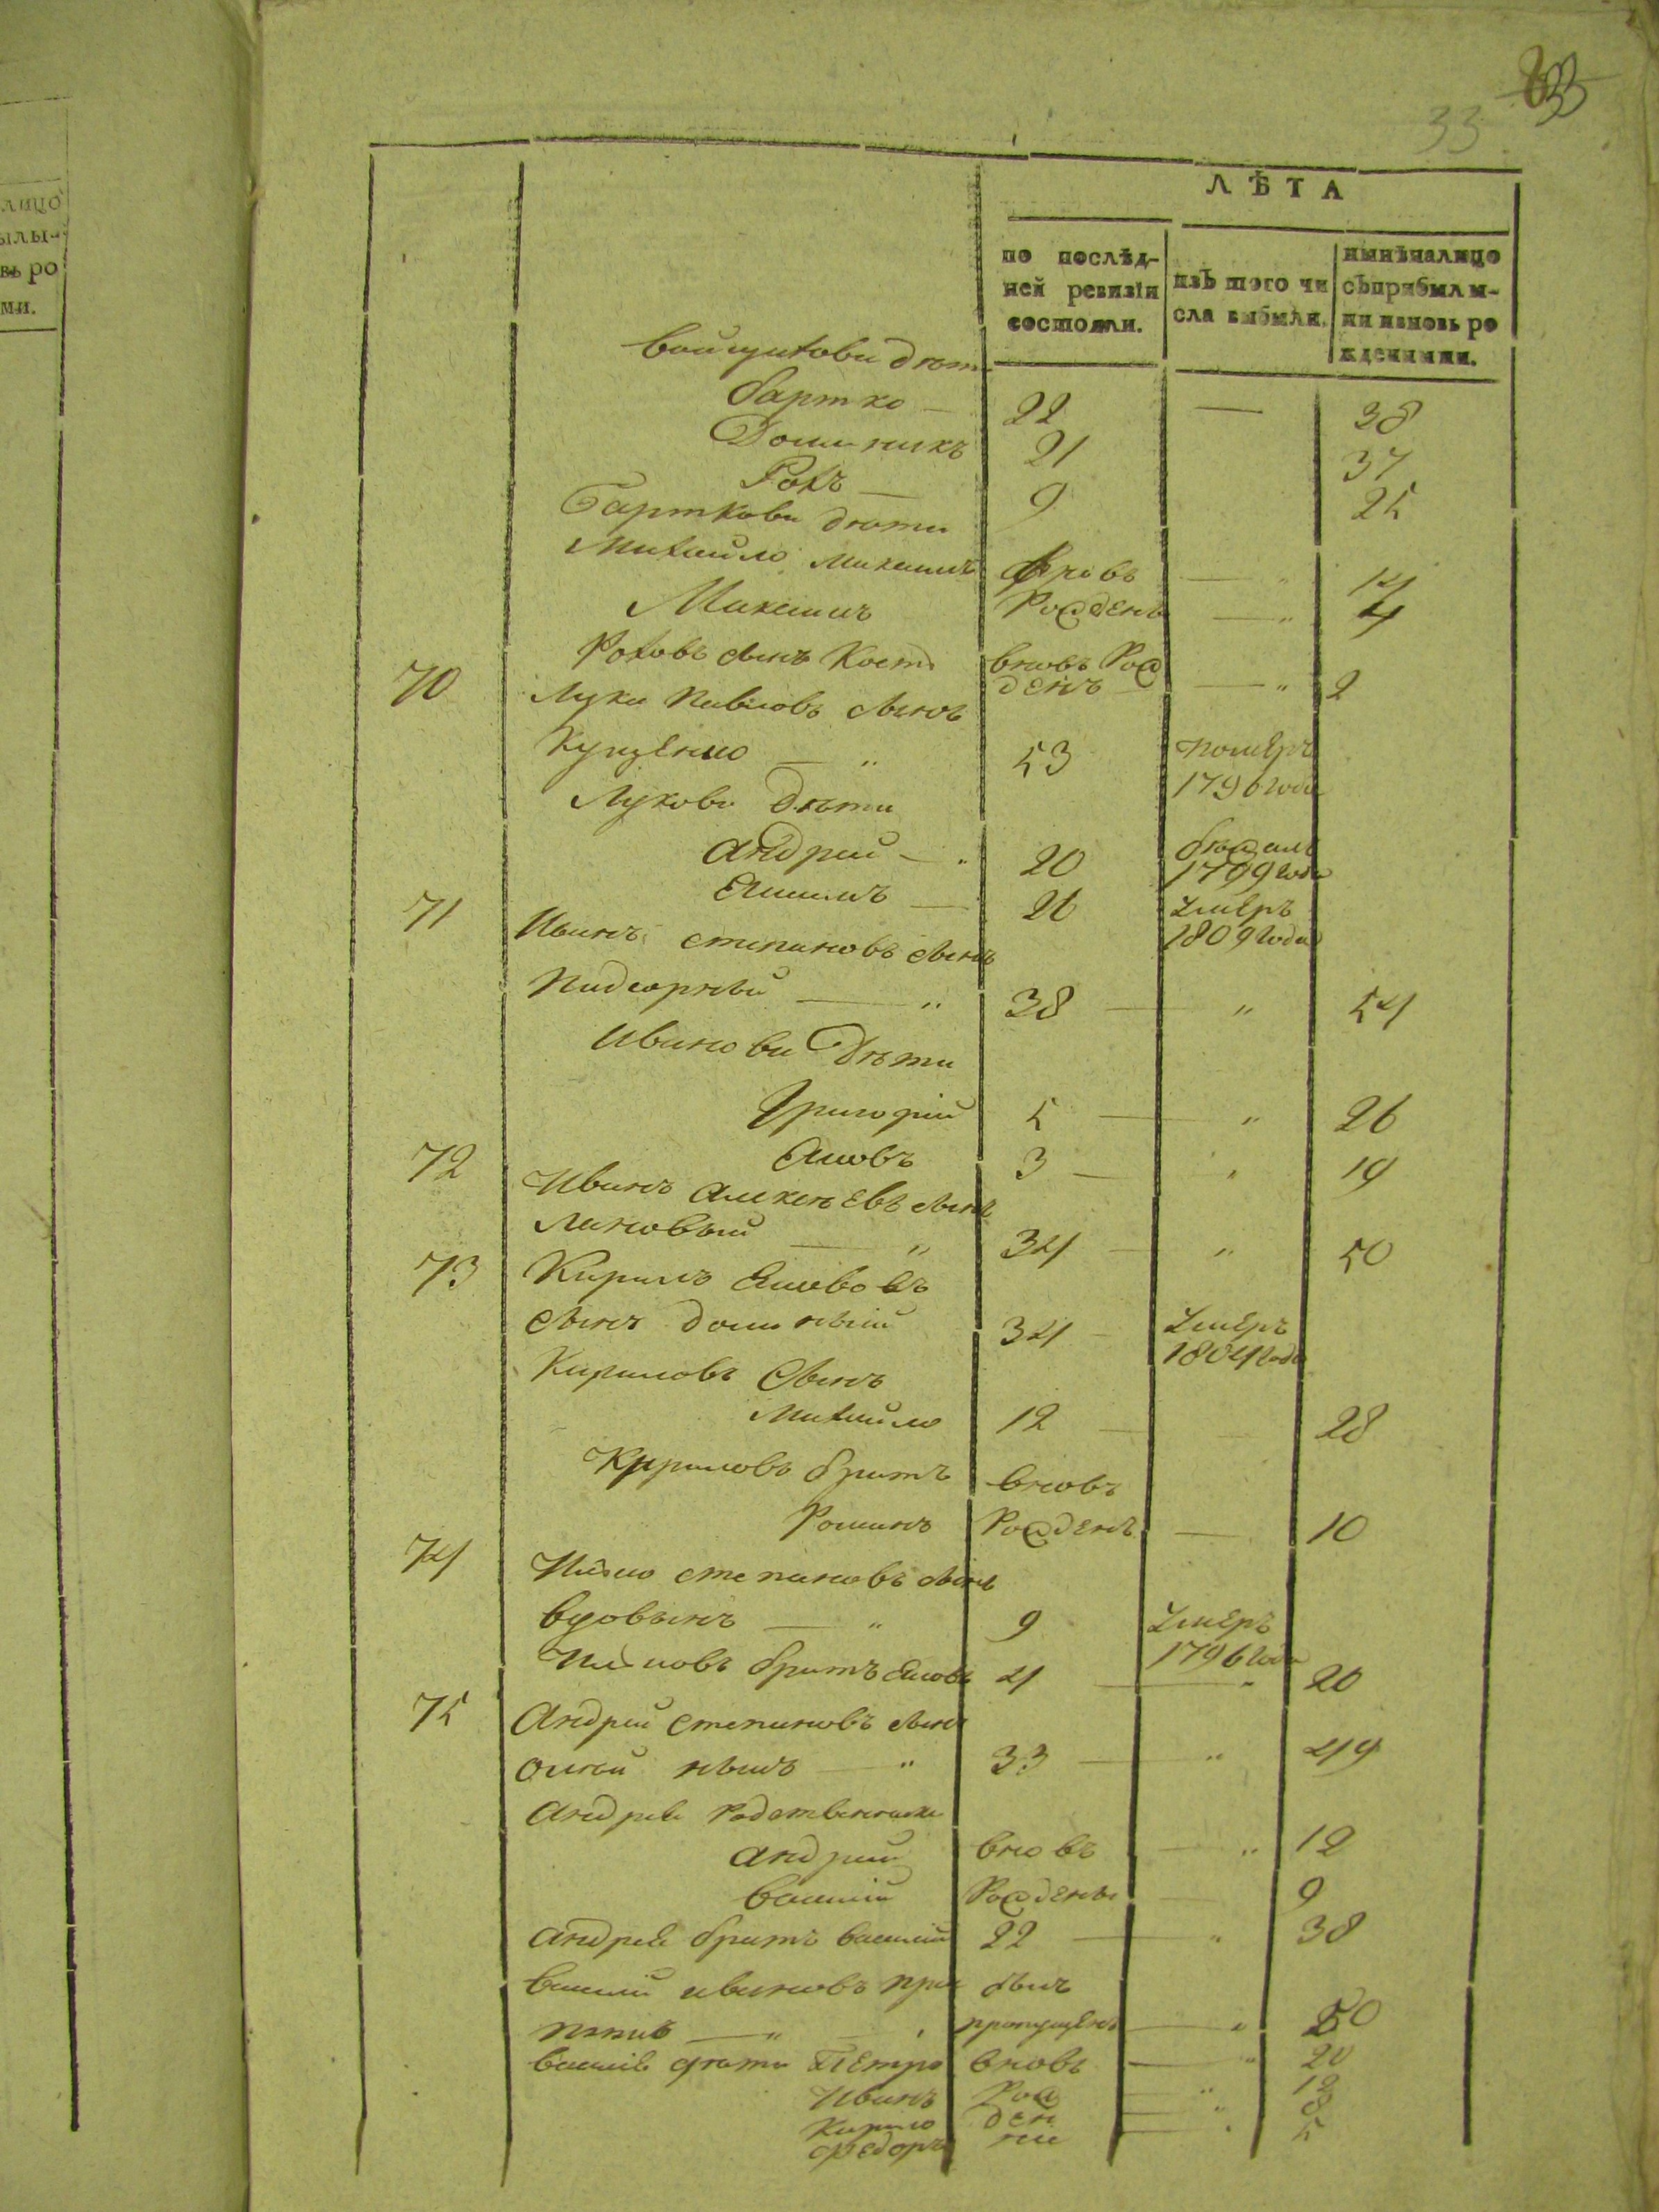 33
ЛѢТА
по послѣд-
ней ревизіи
состояли.
изъ того чи
сла выбыли.
нынѣналицо
съприбылы-
ми ивновь ро
жденными.
лицо
ылы-
вь ро
ми.
дѣти
бартко — 22 — 38
Доминикъ 21 37
Рохъ — 9 25
Барткови дѣти
Михайло
Максимъ Рожденъ — " 4
Роховъ сынъ Вновь Рож
70 денъ — " 2
Лука Павловъ сынъ
Кущенко — " 53 Померъ
1796 года
Лукови дѣти
Андрей — " 20 бежалъ
1799 года
— 26 Умеръ
1809 года
71 Иванъ степановъ сынъ
Подгорный — " 38 — " 54
Иванови Дѣти
Григорій 5 — " 26
Яковъ 3 — " 19
72 Иванъ Алексѣевъ сынъ
Лановый — " 34 — " 50
73 Кирило Якововъ
сынъ 34 — Умеръ
1804 года
Кириловъ Сынъ
Михайло 12 — 28
Кириловъ братъ вновь
Романъ Рожденъ — 10
74 степановъ сынъ
вдовынъ — " 9 Умеръ
1796 года
братъ Яковъ 4 — " 20
75 Андрей степановъ сынъ
— " 33 — " 49
Андрея Родственники
Андрей вновь — " 12
Василій Рождены — 9
Андрея братъ василій 22 — " 38
василій ивановъ при былъ
— " — пропущенъ — " 50
василія дѣти Петро вновь — " 20
Иванъ Рож — " 12
Кирило ден — " 8
Федоръ ни — " 5